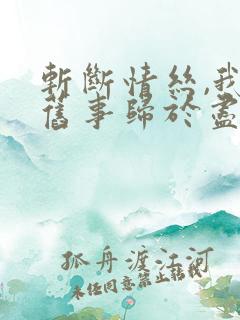 斬斷情絲,我
舊事歸於盡
孤舟渡江河
未经同意禁止转载